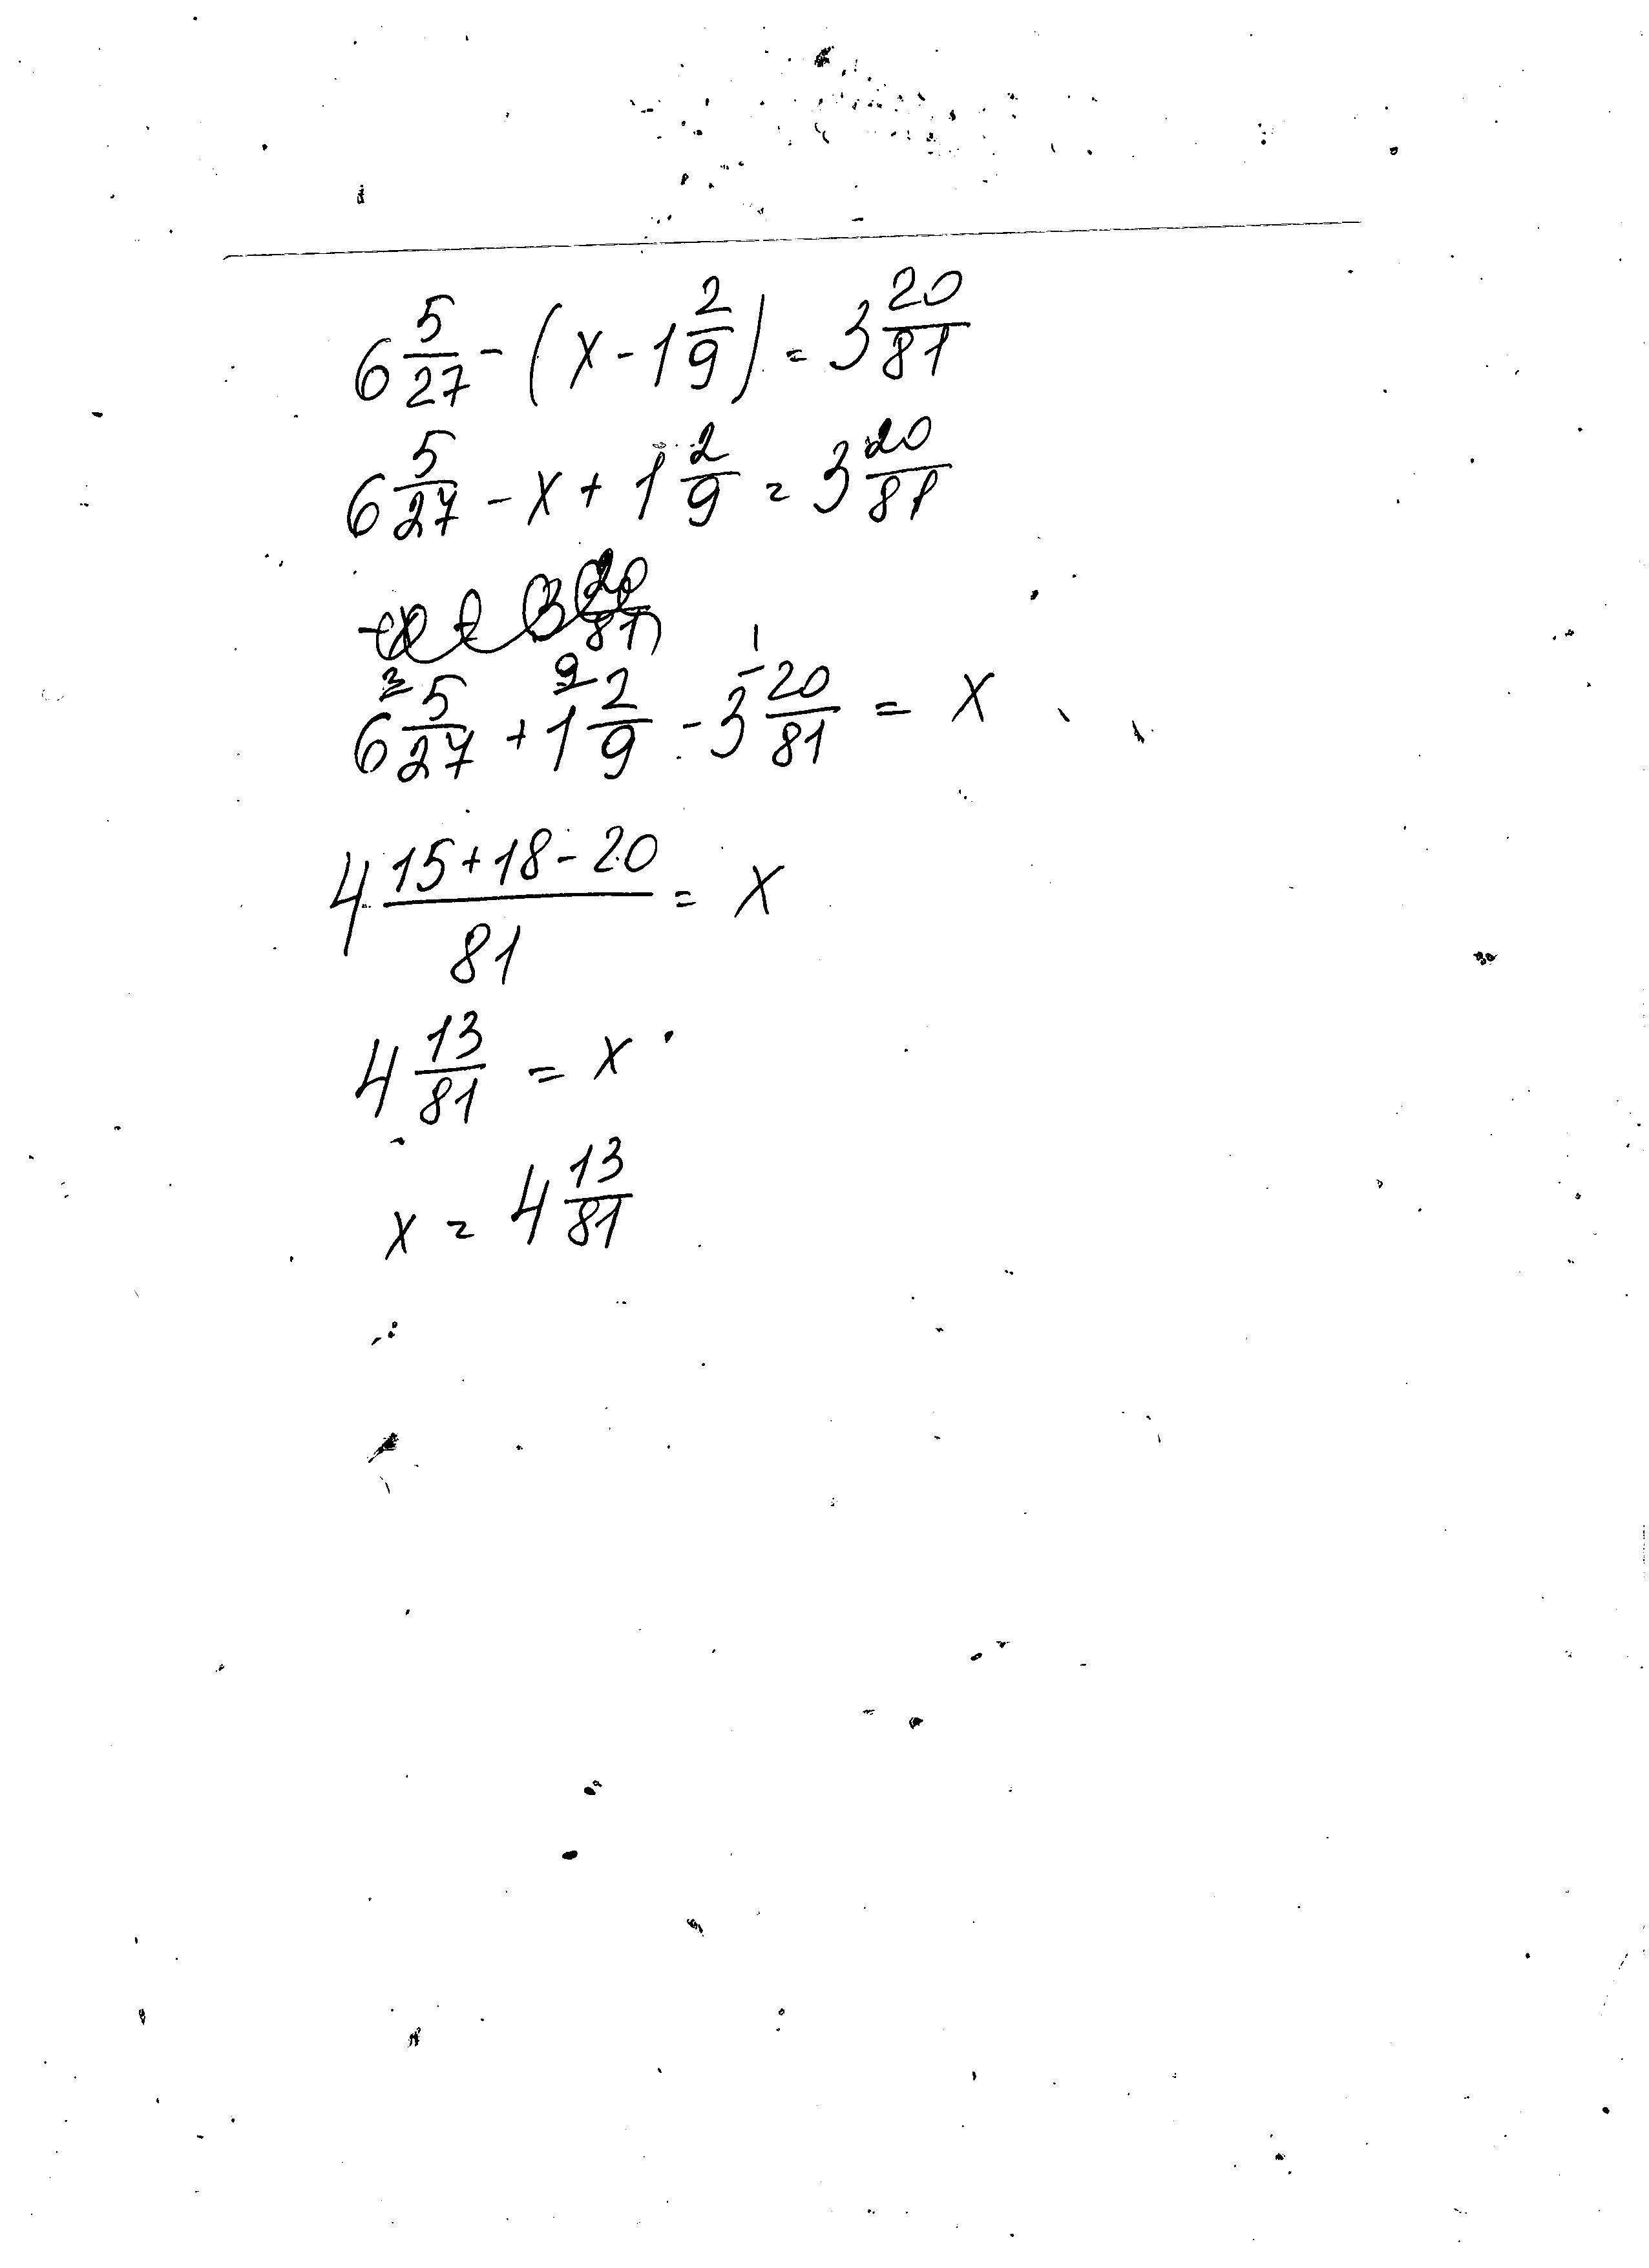 6 5/27 - (x - 1 2/9) = 3 20/81
6 5/27 - x + 1 2/9 = 3 20/81
6 5/27 + 1 2/9 - 3 20/81 = x
4 (15+18-20)/81 = x
4 13/81 = x
x = 4 13/81